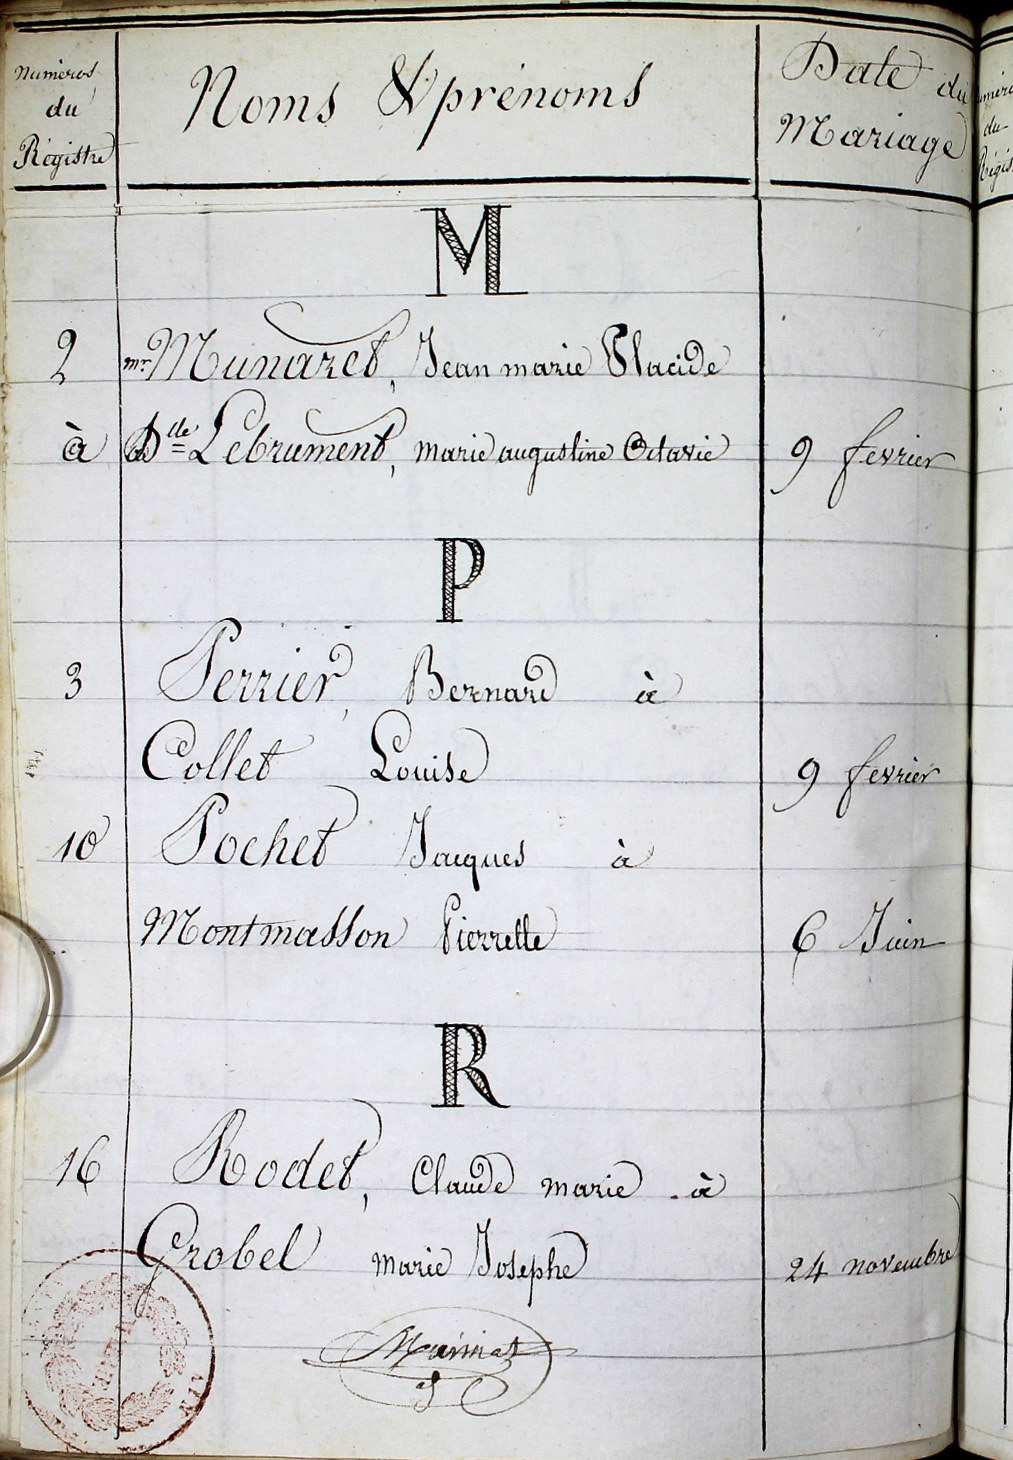 Numéros du Régistre
Noms & prénoms
Date du Mariage
M
2 mr. Munaret, Jean marie Placide
à Dlle Lebrument, marie augustine Octavie 9 fevrier
P
3 Perrier, Bernard à
Collet Louise 9 fevrier
10 Pochet Jacques à
Montmasson Pierrette 6 Juin
R
16 Rodet, Claude marie à
Grobel marie Josephe 24 novembre
AIN